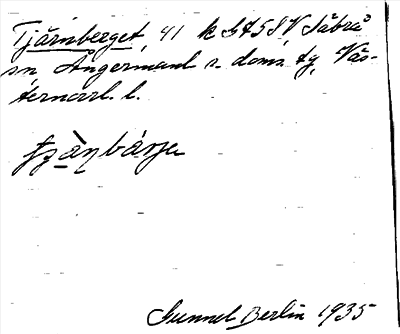 Tjärnberget, 41 k S45SV Säbrå
sn, Ångermanl. s. doms. tg, Väs-
ternorrl. l.
Gunnel Berlin 1935